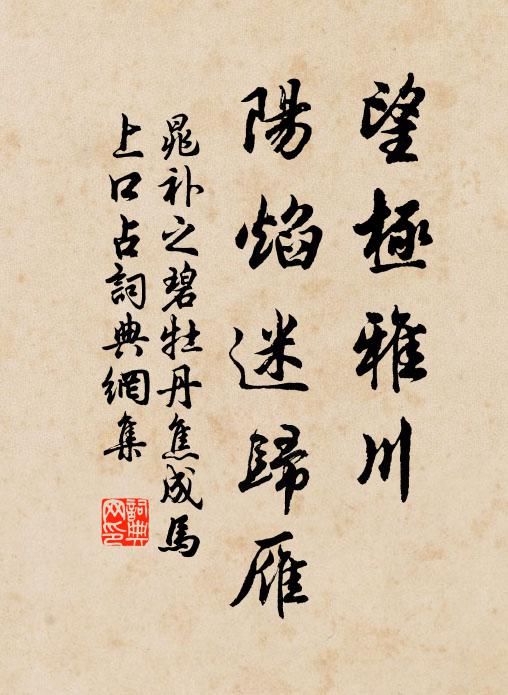 望極雅川
陽焰迷歸雁
晁补之碧牡丹焦成馬
上口占詞典網集
詞典
网印